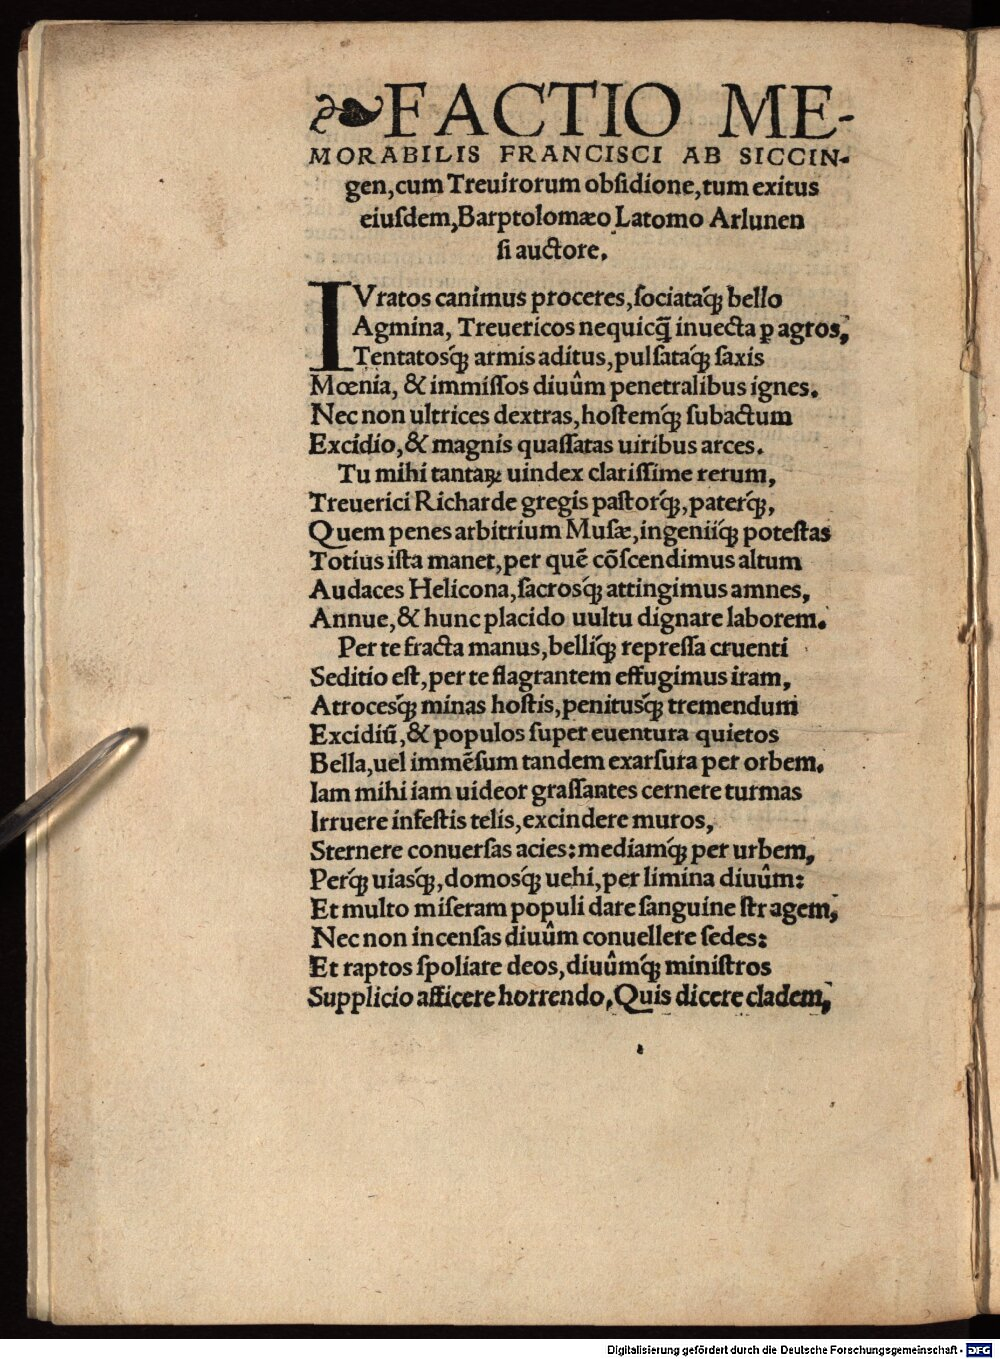 ❧FACTIO ME-
MORABILIS FRANCISCI AB SICCIN-
gen, cum Treuirorum obſidione, tum exitus
eiuſdem, Barptolomæo Latomo Arlunen
ſi auctore.
IVratos canimus proceres, ſociataq́ꝫ bello
Agmina, Treuericos nequicq̃ inuecta ꝑ agros,
Tentatosq́ꝫ armis aditus, pulſataq́ꝫ ſaxis
Mœnia, & immiſſos diuûm penetralibus ignes.
Nec non ultrices dextras, hoſtemq́ꝫ ſubactum
Excidio, & magnis quaſſatas uiribus arces.
Tu mihi tantaꝝ uindex clariſſime rerum,
Treuerici Richarde gregis paſtorq́ꝫ, paterq́ꝫ,
Quem penes arbitrium Muſæ, ingeniiq́ꝫ poteſtas
Totius iſta manet, per quẽ cõſcendimus altum
Audaces Helicona, ſacrosq́ꝫ attingimus amnes,
Annue, & hunc placido uultu dignare laborem.
Per te fracta manus, belliq́ꝫ repreſſa cruenti
Seditio eſt, per te flagrantem effugimus iram,
Atrocesq́ꝫ minas hoſtis, penitusq́ꝫ tremendum
Excidiũ, & populos ſuper euentura quietos
Bella, uel immẽſum tandem exarſura per orbem.
Iam mihi iam uideor graſſantes cernere turmas
Irruere infeſtis telis, excindere muros,
Sternere conuerſas acies: mediamq́ꝫ per urbem,
Perq́ꝫ uiasq́ꝫ, domosq́ꝫ uehi, per limina diuûm:
Et multo miſeram populi dare ſanguine ſtragem,
Nec non incenſas diuûm conuellere ſedes:
Et raptos ſpoliare deos, diuûmq́ꝫ miniſtros
Supplicio afficere horrendo, Quis dicere cladem,
Digitalisierung gefördert durch die Deutsche Forschungsgemeinschaft - DFG